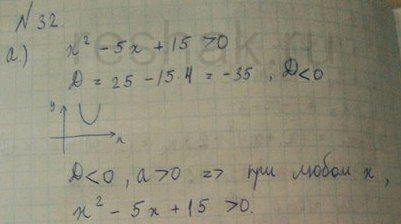 N 32.
a) x² - 5x + 15 > 0
D = 25 - 15·4 = -35 , D < 0
y
x
D < 0 , a > 0 => при любом x ,
x² - 5x + 15 > 0.
reshak.ru